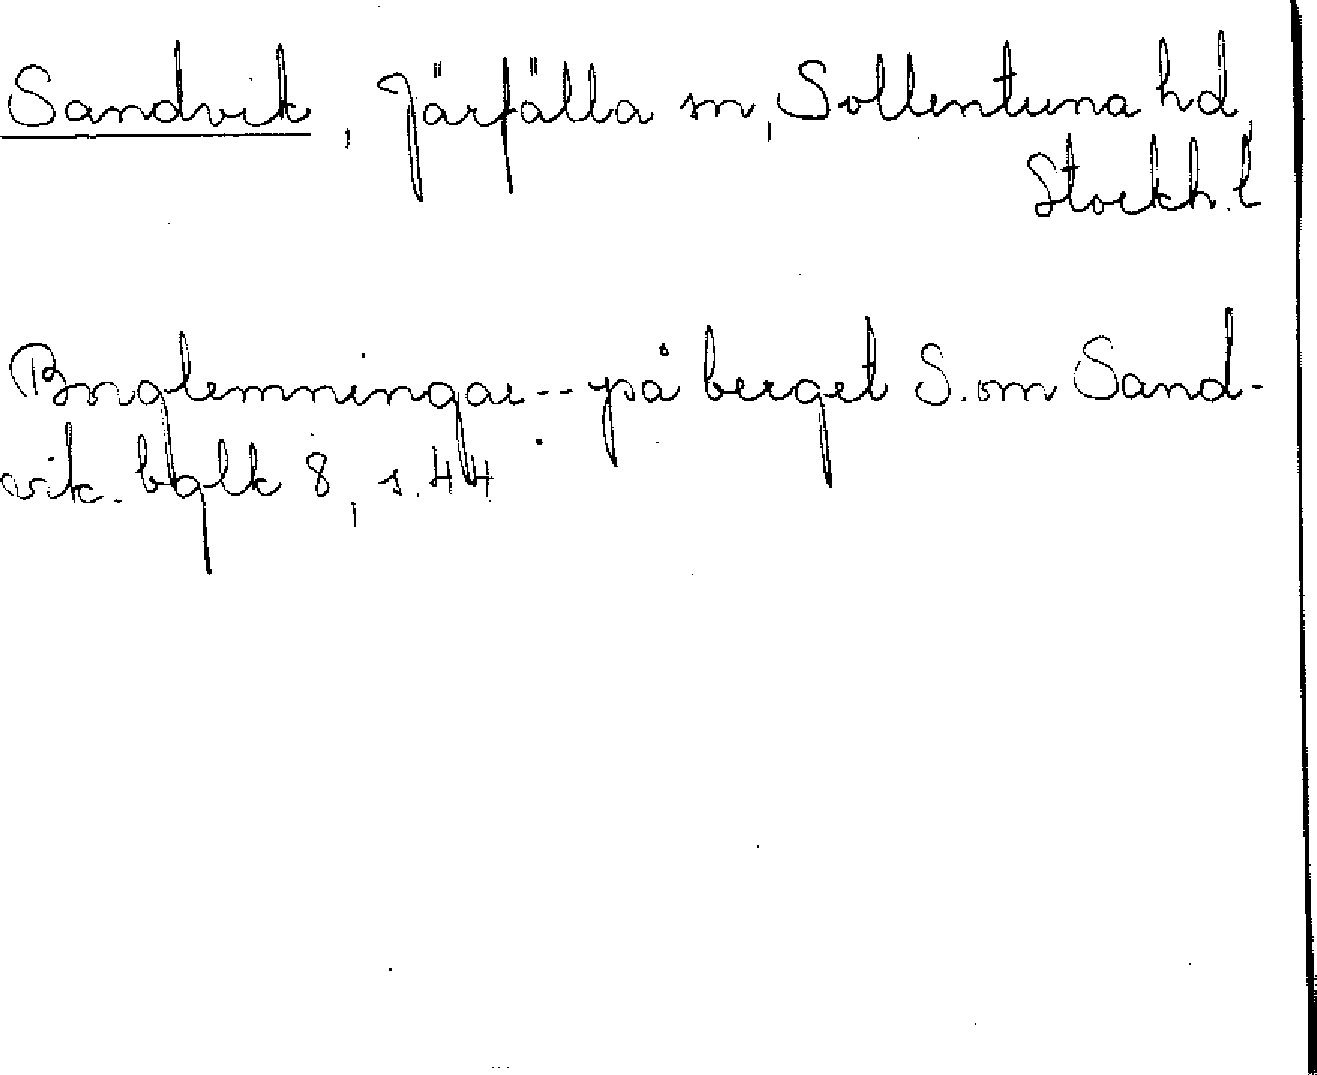 Sandvik, Järfälla sn, Sollentuna hd,
Stockh. l
Borglemningar -- på berget S. om Sand-
vik. bglk 8, s. 44